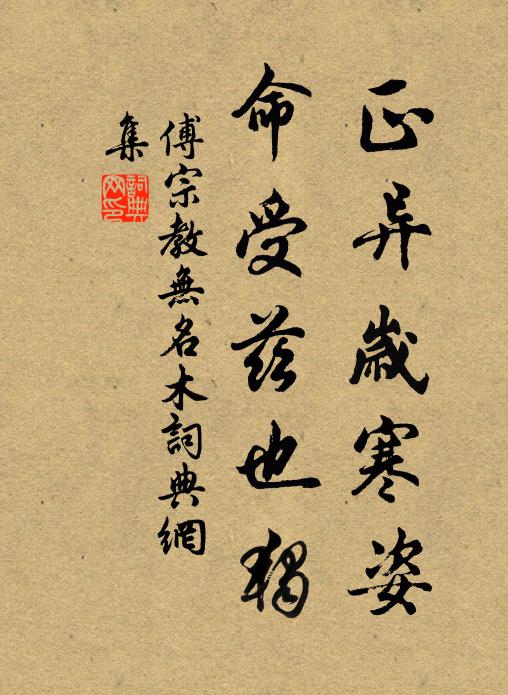 正异嵗寒姿
命受兹也獨
傅宗教無名木詞典網
集
詞典
网印